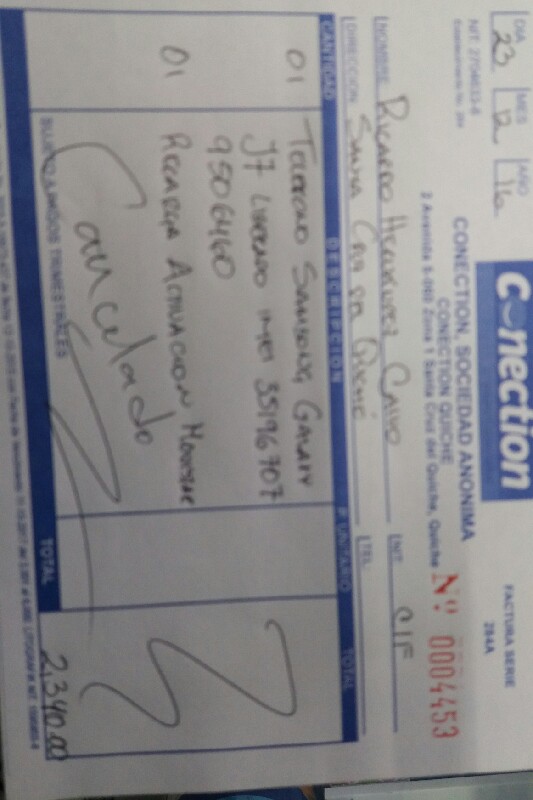 DIA MES AÑO
23 12 16
Conection
CONECTION, SOCIEDAD ANONIMA
CONECTION QUICHE
2 Avenida Zona 1 Santa Cruz del Quiche, Quiche
FACTURA SERIE
284A
Nº 0004453
NOMBRE Ricardo Calvo NIT. C/F
DIRECCION Santa Cruz del Quiché TEL.
CANTIDAD DESCRIPCION P. UNITARIO TOTAL
01 Telefono Samsung Galaxy
J7 Liberado imei 35196707
9506460
01 Recarga Activacion Movistar
Cancelado
SUJETO A PAGOS TRIMESTRALES TOTAL 2,340.00